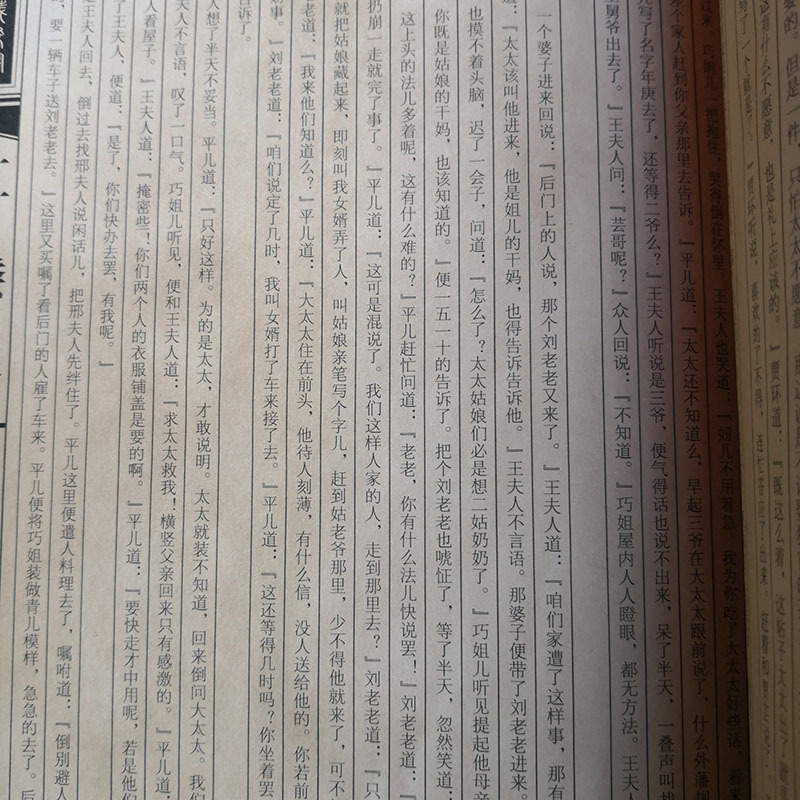 过来，巧姐儿一把抱住，哭得倒在怀里。王夫人也哭道：『妞儿不用着急，我为你吃了大太太好些话，看来
家人赶到你父亲那里去告诉。』平儿道：『太太还不知道么，早起三爷在大太太跟前说了，什么外藩规
写了名字年庚去了，还等得二爷么？』王夫人听说是三爷，便气得话也说不出来，呆了半天，一叠声叫找
舅爷出去了。』王夫人问：『芸哥呢？』众人回说：『不知道。』巧姐屋内人人瞪眼，都无方法。王夫人
一个婆子进来回说：『后门上的人说，那个刘老老又来了。』王夫人道：『咱们家遭了这样事，那有
『太太该叫他进来，他是姐儿的干妈，也得告诉告诉他。』王夫人不言语。那婆子便带了刘老老进来。
也摸不着头脑，迟了一会子，问道：『怎么了？太太姑娘们必是想二姑奶奶了。』巧姐儿听见提起他母亲
你既是姑娘的干妈，也该知道的。』便一五一十的告诉了。把个刘老老也唬怔了，等了半天，忽然笑道：
这上头的法儿多着呢，这有什么难的？』平儿赶忙问道：『老老，你有什么法儿快说罢！』刘老老道：『
扔崩一走就完了事了。』平儿道：『这可是混说了。我们这样人家的人，走到那里去？』刘老老道：『只
就把姑娘藏起来，即刻叫我女婿弄了人，叫姑娘亲笔写个字儿，赶到姑老爷那里，少不得他就来了，可不
老道：『我来他们知道么？』平儿道：『大太太住在前头，他待人刻薄，有什么信，没人送给他的。你若前
事。』刘老老道：『咱们说定了几时，我叫女婿打了车来接了去。』平儿道：『这还等得几时吗？你坐着罢
告诉了。
人想了半天不妥当。平儿道：『只好这样。为的是太太，才敢说明。太太就装不知道，回来倒问大太太。我们
人不言语，叹了一口气。巧姐儿听见，便和王夫人道：『求太太救我！横竖父亲回来只有感激的。』平儿道：
人看屋子。』王夫人道：『掩密些！你们两个人的衣服铺盖是要的啊。』平儿道：『要快走才中用呢，若是他们
了王夫人，便道：『是了，你们快办去罢，有我呢。』
王夫人回去，倒过去找邢夫人说闲话儿，把邢夫人先绊住了。平儿这里便遣人料理去了，嘱咐道：『倒别避人
要一辆车子送刘老老去。』这里又买嘱了看后门的人雇了车来。平儿便将巧姐装做青儿模样，急急的去了。后